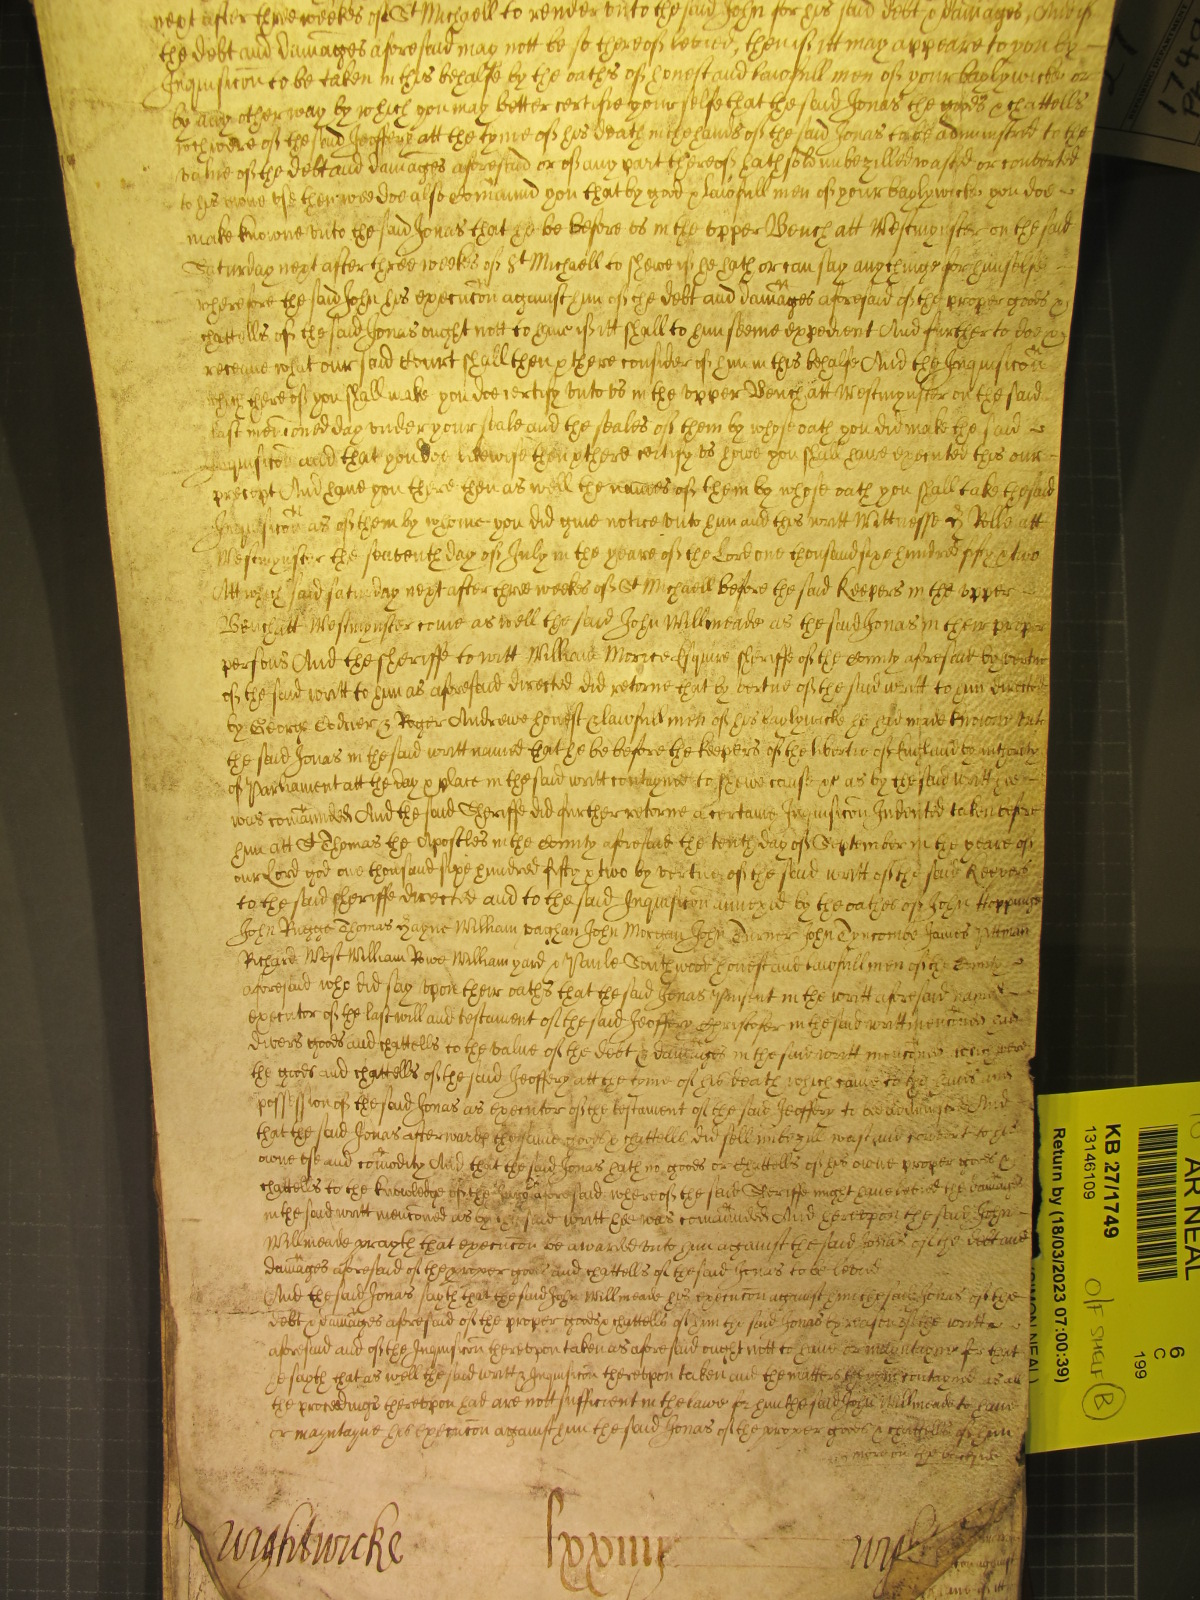 next after three weekes of St Michaell to render unto the said John for his said debt & damages, And if
the debt and damages aforesaid may nott be so thereof levied, then if itt may appeare to you by
Inquisicon to be taken in this behalfe by the oaths of honest and lawfull men of your baylywicke or
by any other way by which you may better certifie your selfe that the said Jonas the goods & chattells
which were of the said Jeoffery att the tyme of his death in the hands of the said Jonas to be administred to the
value of the debt and damages aforesaid or of any part thereof hath sold imbezilled wasted or converted
to his owne use then wee doe also command you that by good & lawfull men of your baylywicke you doe
make knowne unto the said Jonas that he be before us in the upper Bench att Westmynster on the said
Saturday next after three weekes of St Michaell to shewe if he hath or can say any thinge for himselfe
wherefore the said John his execucon against him of the debt and damages aforesaid of the proper goods &
chattells of the said Jonas ought nott to have if itt shall to him seeme expedient And further to doe &
receave what our said Court shall then & there consider of him in this behalfe And the Inquisicon
which thereof you shall make you doe certify unto us in the upper Bench att Westmynster on the said
last mencioned day under your seale and the seales of them by whose oath you did make the said
Inquisicon and that you doe likewise then & there certify us howe you shall have executed this our
precept And have you there then as well the names of them by whose oath you shall take the said
Inquisicon as of them by whome you did give notice unto him and this writt Wittnesse H Rolle att
Westmynster the seaventh day of July in the yeare of the Lord one thousand sixe hundred fifty & two
Att which said saturday next after three weekes of St Michaell before the said Keepers in the upper
Bench att Westmynster come as well the said John Willmeade as the said Jonas in their proper
persons And the sheriffe to witt William Morice Esquire sheriffe of the County aforesaid by vertue
of the said writt to him as aforesaid directed did retorne that by vertue of the said writt to him directed
by George Codner & Roger Andrewe honest & lawfull men of his baylywicke he had made knowne unto
the said Jonas in the said writt named that he be before the keepers of the libertie of England by authority
of Parliament att the day & place in the said writt contayned to shewe cause &c as by the said writt he
was commanded And the said Sheriffe did further retorne a certaine Inquisicon Indented taken before
him att St Thomas the Apostles in the County aforesaid the tenth day of September in the yeare of
our Lord god one thousand sixe hundred fifty & two by vertue of the said writt of the said Keepers
to the said sheriffe directed and to the said Inquisicon annexed by the oathes of John Hoppinge
John Rugge Thomas Payne William Vaghan John Morgan John Turner John Tyncombe James Pittman
Richard West William Rowe William yard & Paule Southwood honest and lawfull men of the County
aforesaid who did say upon their oaths that the said Jonas Vinsent in the writt aforesaid named
executor of the last will and testament of the said Jeoffery Christofer in the said writt mencioned had
divers goods and chattells to the value of the debt & damages in the said writt mencioned which were
the goods and chattells of the said Jeoffery att the tyme of his death which came to the hands and
possession of the said Jonas as executor of the testament of the said Jeoffery to be administred And
that the said Jonas afterwards the same goods & chattells did sell imbezill wast and convert to his
owne use and comodity And that the said Jonas hath no goods or chattells of his owne proper goods &
chattells to the knowledge of the Jury aforesaid whereof the said Sheriffe might have levied the damages
in the said writt mencioned as by the said writt he was commanded And hereupon the said John
Willmeade prayth that execucon be awarded unto him against the said Jonas of the debt and
damages aforesaid of the proper goods and chattells of the said Jonas to be levied
And the said Jonas sayth that the said John Willmeade his execucon against him the said Jonas of the
debt & damages aforesaid of the proper goods & chattells of him the said Jonas by reason of the writt
aforesaid and of the Inquisicon thereupon taken as aforesaid ought nott to have or mayntayne for that
he sayth that as well the said writt & Inquisicon thereupon taken and the matters therein contayned as all
the proceedings thereupon had are nott sufficient in the lawe for him the said John Willmeade to have
or mayntayne his execucon against him the said Jonas of the proper goods & chattells of him
more on the backside
Wightwicke
lxxiiij
KB 27/1749
13146109
Return by (18/03/2023 07:00:39)
(SIMON NEAL)
O/F SHELF B
6
C
199
AR NEAL